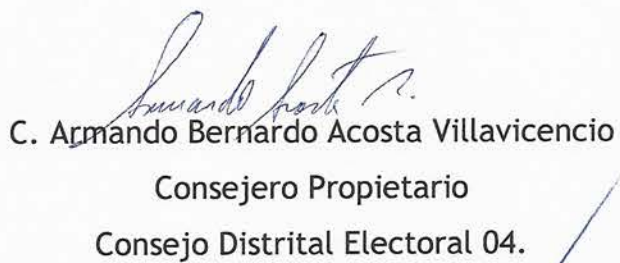 Armando Acosta V.
C. Armando Bernardo Acosta Villavicencio
Consejero Propietario
Consejo Distrital Electoral 04.